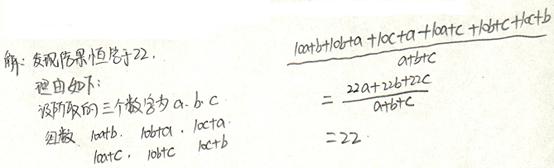 解：发现结果恒等于22.
理由如下：
设所取的三个数字为a、b、c
组数 10a+b. 10b+a. 10c+a.
10a+c. 10b+c 10c+b
10a+b+10b+a+10c+a+10a+c+10b+c+10c+b
a+b+c
= 22a+22b+22c
a+b+c
=22.